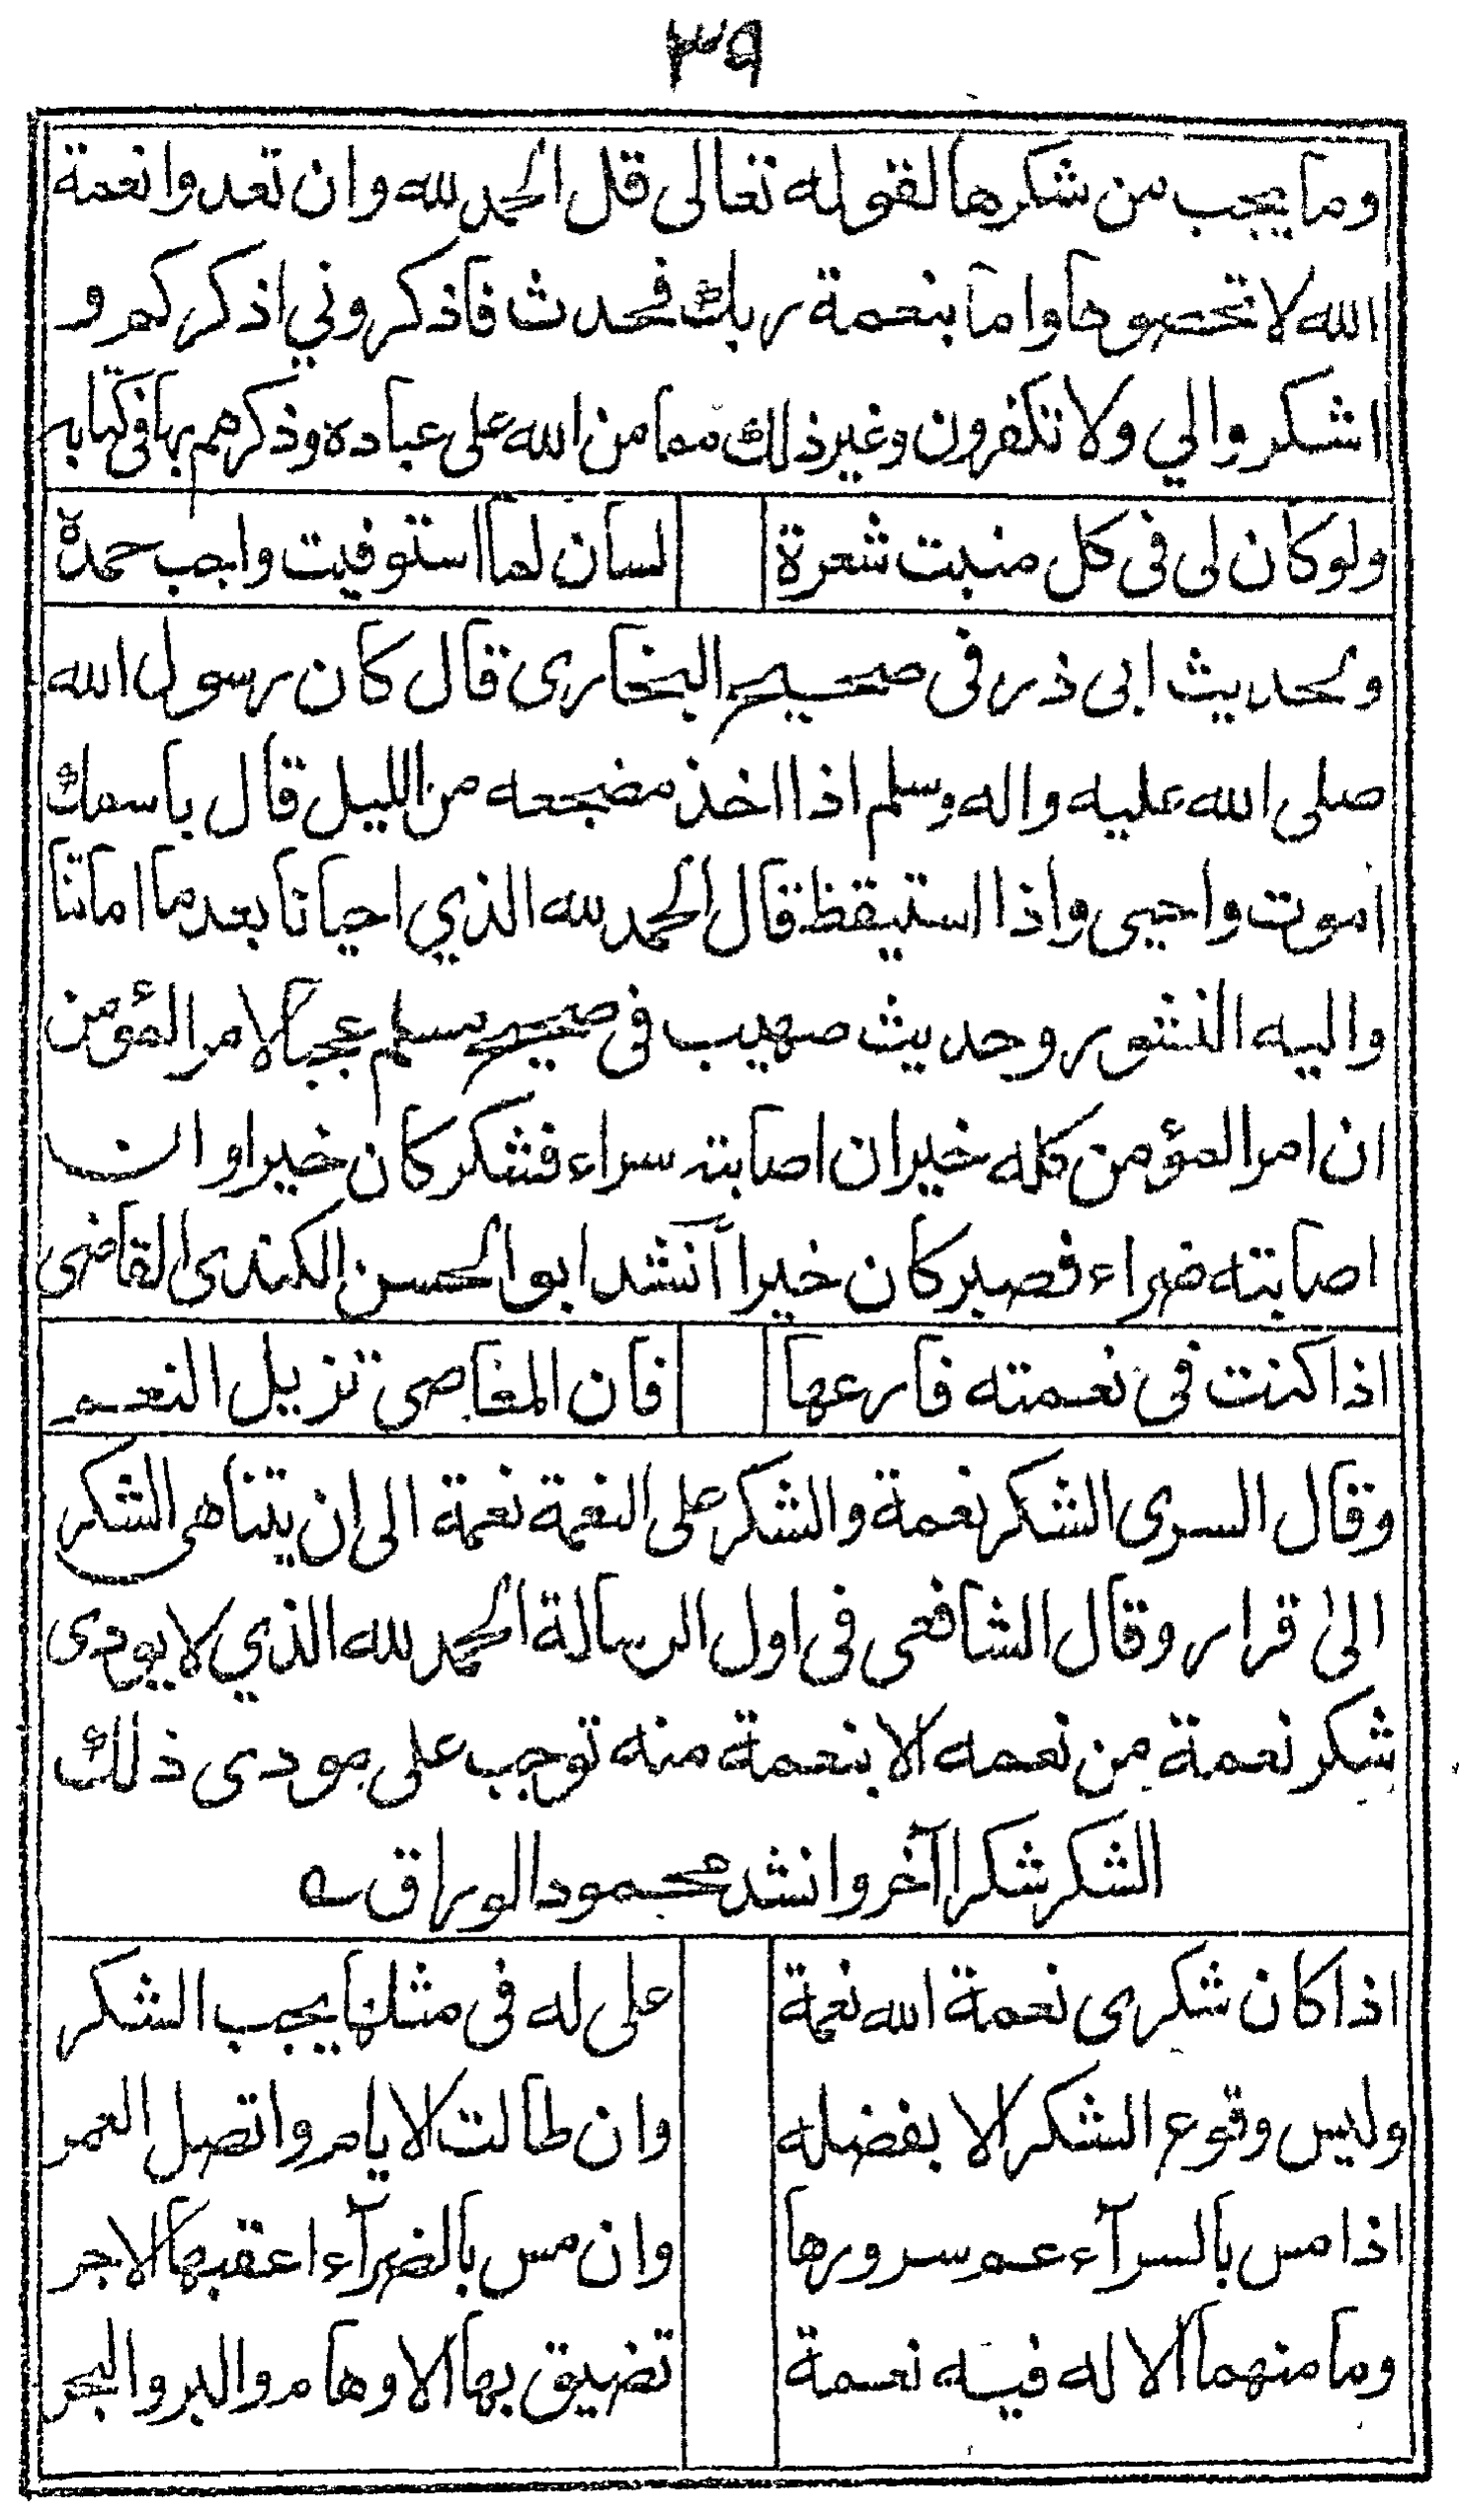 ٣٩
وما يجب من شكرها لقوله تعالى قل الحمد لله وان تعدوا نعمة
الله لا تحصوها واما بنعمة ربك فحدث فاذكروني اذكركم و
اشكروا لي ولا تكفرون وغير ذلك مما من الله على عباده وذكرهم بها في كتابه
ولو كان لى فى كل منبت شعرة لسان لما استوفيت واجب حمده
ولحديث ابى ذر فى صحيح البخارى قال كان رسول الله
صلى الله عليه واله وسلم اذا اخذ مضجعه من الليل قال باسمك
اموت واحيى واذا استيقظ قال الحمد لله الذي احيانا بعد ما اماتنا
واليه النشور وحديث صهيب فى صحيح مسلم عجبا لامر المؤمن
ان امر المؤمن كله خير ان اصابته سراء فشكر كان خيرا وان
اصابته ضراء فصبر كان خيرا أنشد ابو الحسن الكندى القاضى
اذا كنت فى نعمته فارعها فان المغاصى تزيل النعم
وقال السرى الشكر نعمة والشكر على النعمة نعمة الى ان يتناهى الشكر
الى قرار وقال الشافعى فى اول الرسالة الحمد لله الذي لا يودى
شكر نعمة من نعمه الا بنعمة منه توجب على مودى ذلك
الشكر شكرا آخر وانشد محمود الوراق ؎
اذا كان شكرى نعمة الله نعمة على له فى مثلها يجب الشكر
وليس وقوع الشكر الا بفضله وان طالت الايام واتصل العمر
اذا مس بالسرآء عم سرورها وان مس بالضرآء اعقبها الاجر
وما منهما الا له فيه نعمة تضيق بها الاوهام والبر والبحر